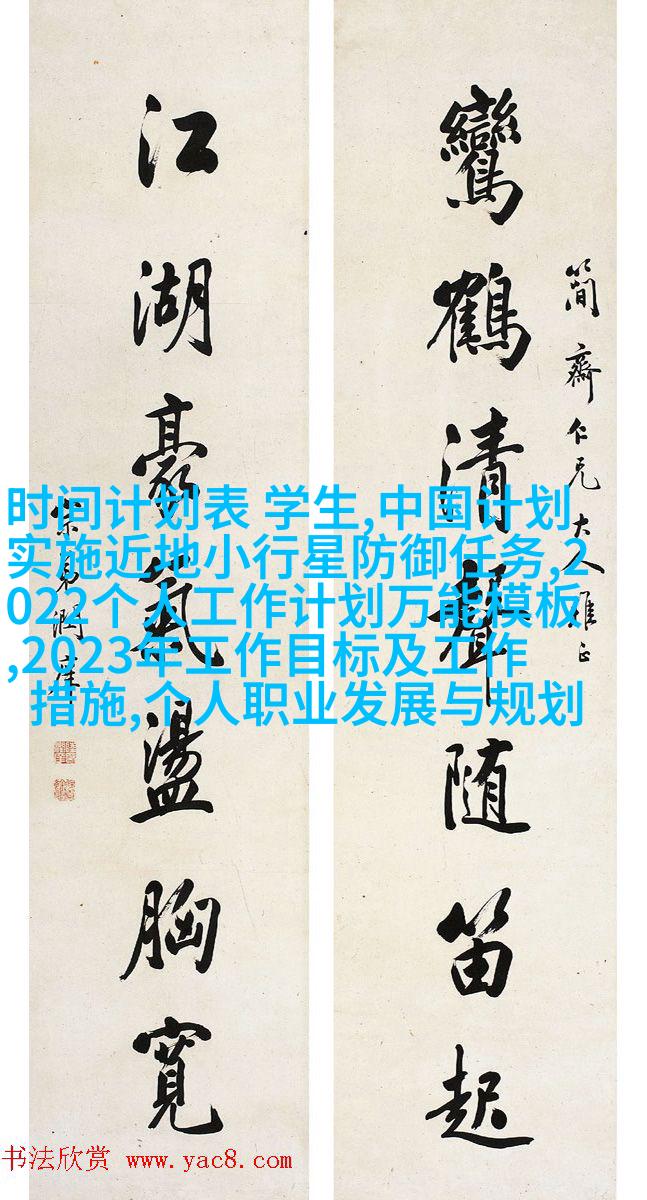 鸞鶴清聲随笛起
簡齋仁兄大人雅正
江湖豪氣盪胸寬
弟潤庠
时间计划表 学生,中国计划
实施近地小行星防御任务,2
022个人工作计划万能模板
,2023年工作目标及工作
措施,个人职业发展与规划
书法欣赏 www.yac8.com